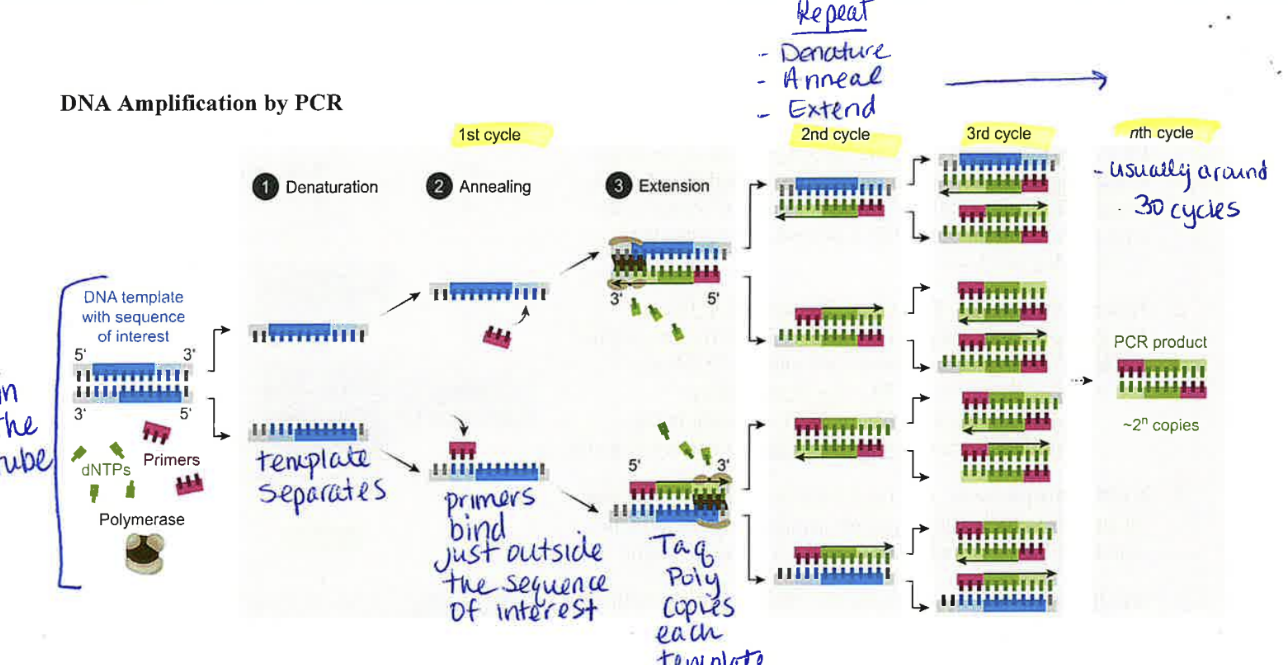 Repeat
- Denature
- Anneal
- Extend
DNA Amplification by PCR
1st cycle
2nd cycle
3rd cycle
nth cycle
- usually around
30 cycles
1 Denaturation
2 Annealing
3 Extension
3' 5'
DNA template
with sequence
of interest
5' 3'
3' 5'
in
the
tube
dNTPs
Primers
Polymerase
template
separates
primers
bind
just outside
the sequence
of interest
5' 3'
Taq
Poly
copies
each
template
PCR product
~2ⁿ copies